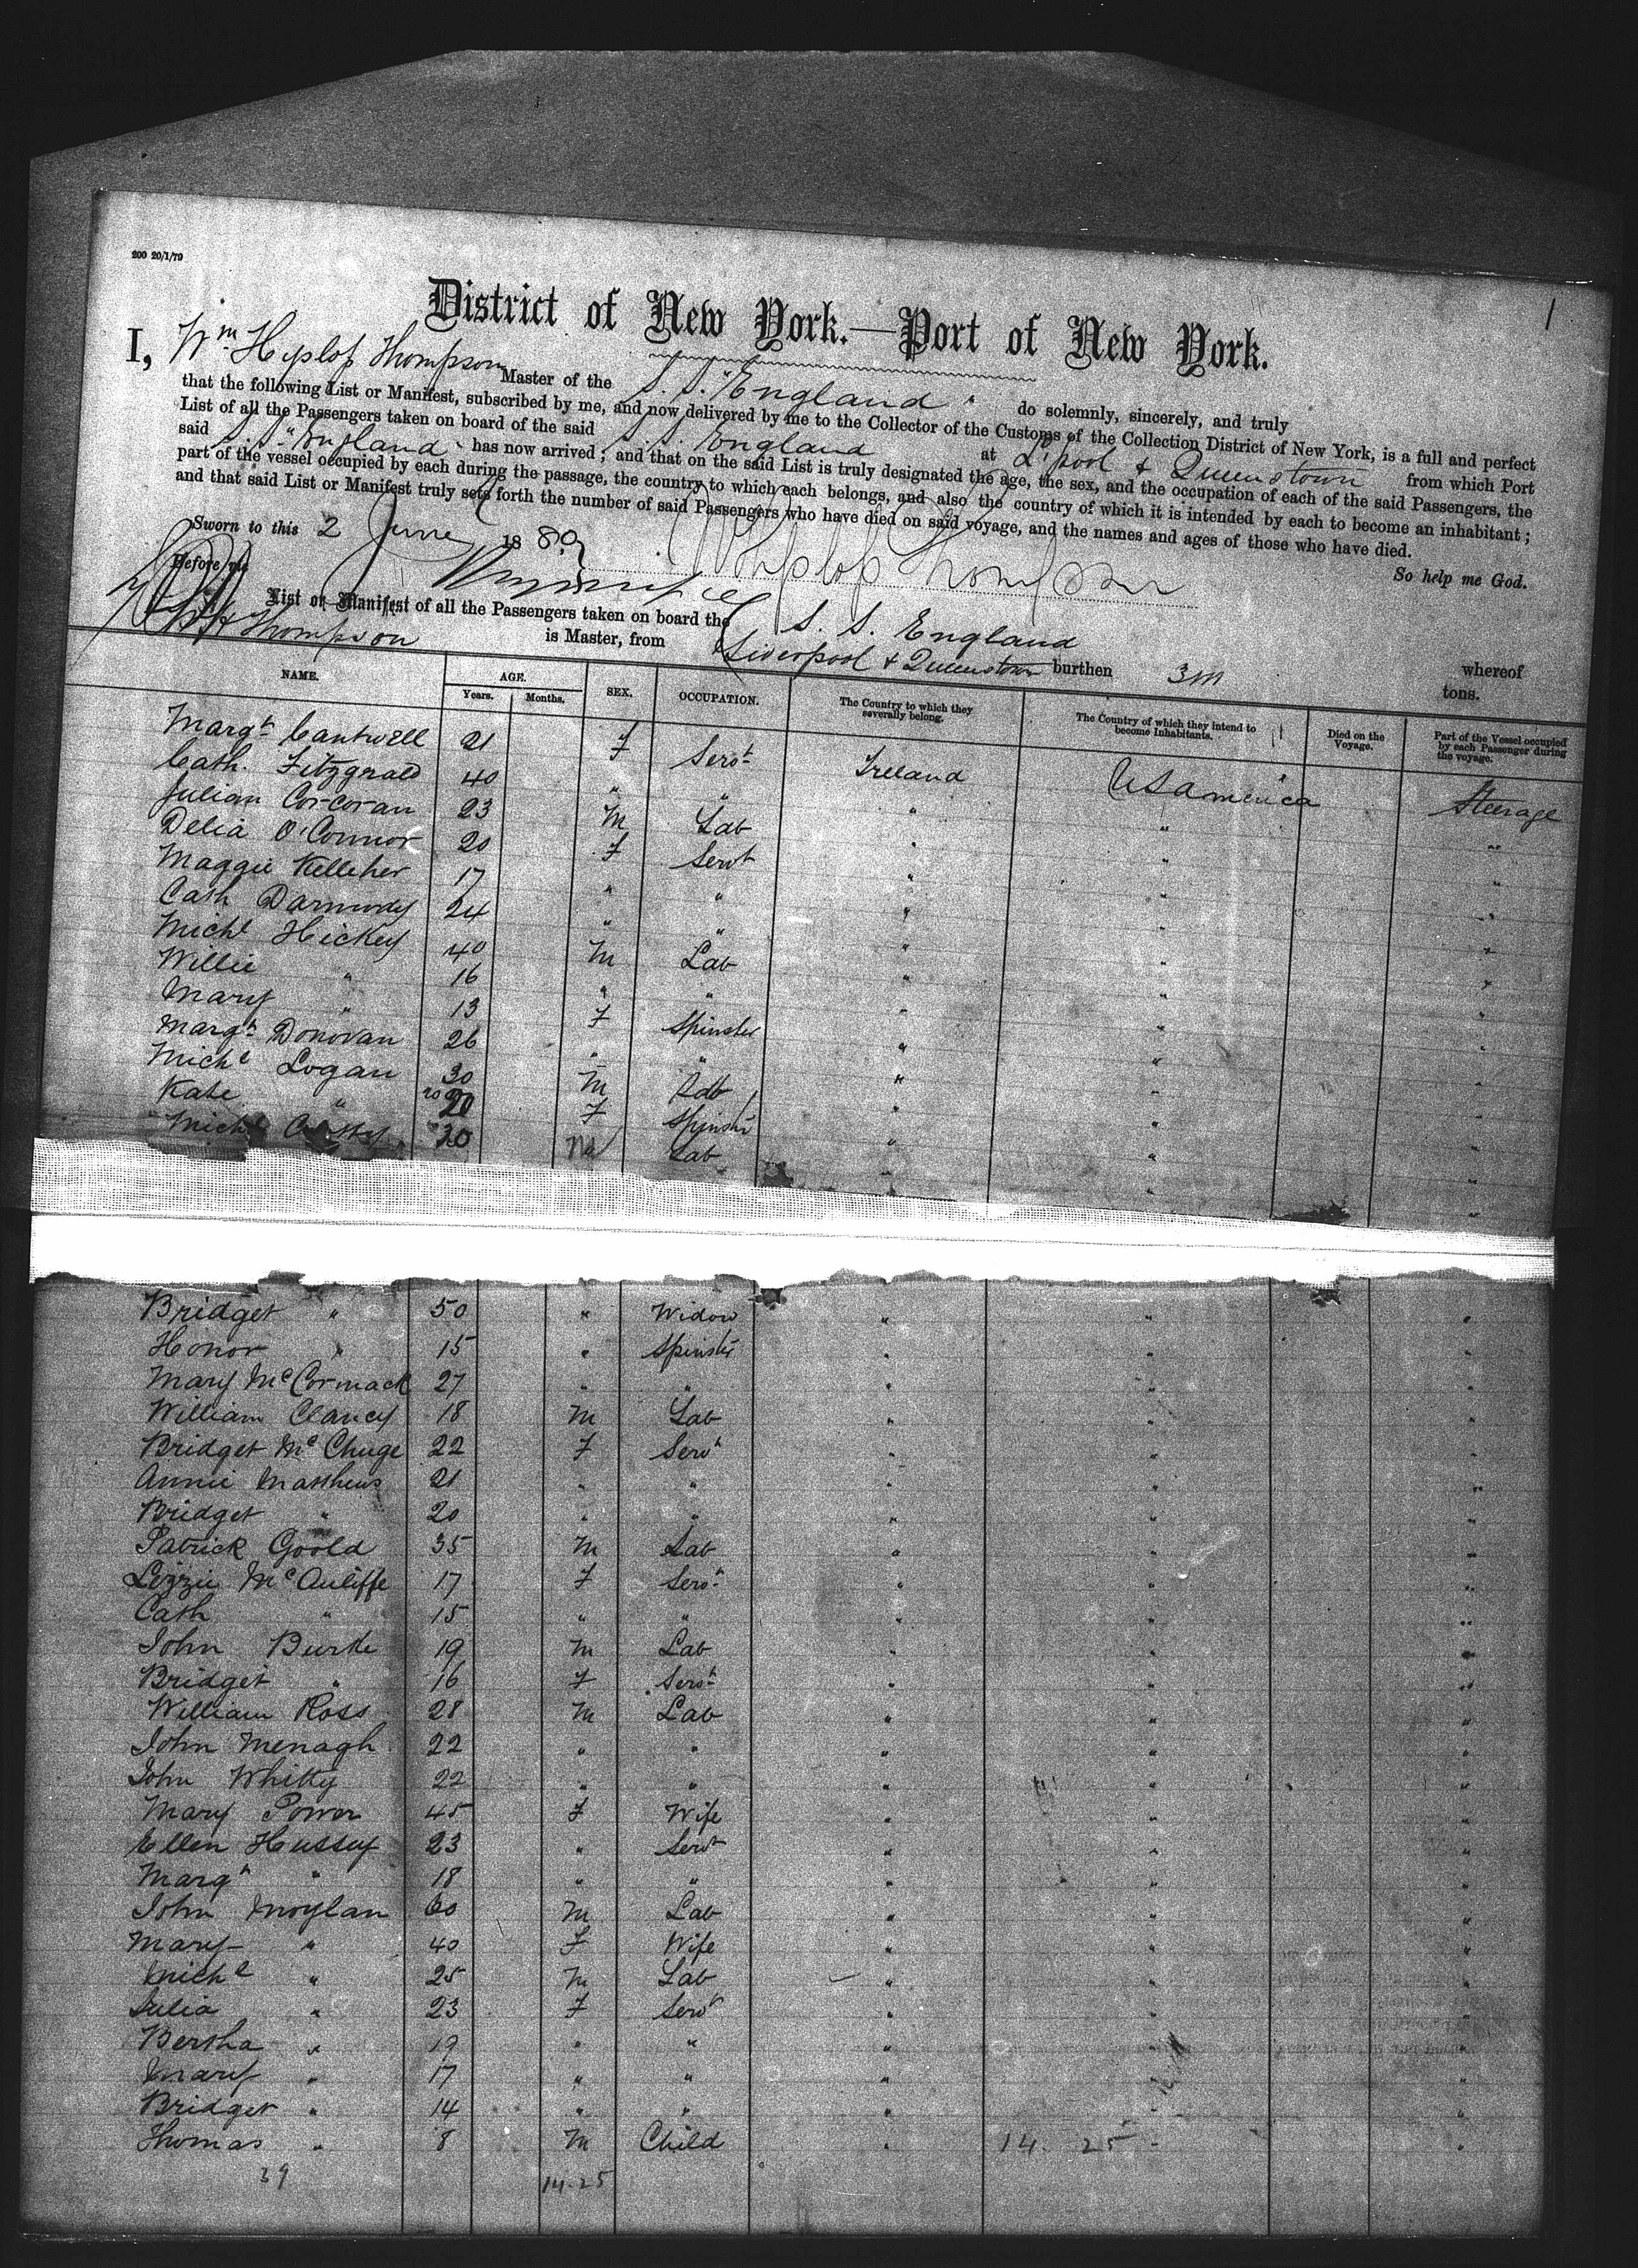 200 20/1/79
1
District of New York.—Port of New York.
I, Wm Hyslop Thompson Master of the S. S. "England" do solemnly, sincerely, and truly
that the following List or Manifest, subscribed by me, and now delivered by me to the Collector of the Customs of the Collection District of New York, is a full and perfect
List of all the Passengers taken on board of the said S. S. England at L'pool & Queenstown from which Port
said S. S. "England" has now arrived; and that on the said List is truly designated the age, the sex, and the occupation of each of the said Passengers, the
part of the vessel occupied by each during the passage, the country to which each belongs, and also the country of which it is intended by each to become an inhabitant;
and that said List or Manifest truly sets forth the number of said Passengers who have died on said voyage, and the names and ages of those who have died.
So help me God.
Sworn to this 2 June 1880 Thompson
Before me
List or Manifest of all the Passengers taken on board the S. S. England whereof
W H Thompson is Master, from Liverpool & Queenstown burthen tons.
NAME. AGE. Years. Months. SEX. OCCUPATION. The Country to which they severally belong. The Country of which they intend to become Inhabitants. Died on the Voyage. Part of the Vessel occupied by each Passenger during the voyage.
Margt Cantwell 21 F Servt Ireland USAmerica Steerage
Cath. Fitzgrald 40 " " " " "
Julian Corcoran 23 M Lab " " "
Delia O'Connor 20 F Servt " " "
Maggie Kelleher 17 " " " " "
Cath Darmody 24 " " " " "
Michl Hickey 40 M Lab " " "
Willie " 16 " " " " "
Mary " 13 F Spinster " " "
Margt Donovan 26 " " " " "
Michl Logan 30 M Lab " " "
Kate " 20 F Spinstr " " "
Michl 30 M Lab " " "
Bridget " 50 " Widow " " "
Honor " 15 " Spinstr " " "
Mary McCormack 27 " " " " "
William Clancy 18 M Lab " " "
Bridget Mc Chuge 22 F Servt " " "
Annie Matthews 21 " " " " "
Bridget " 20 " " " " "
Patrick Goold 35 M Lab " " "
Lizzie McAuliffe 17 F Servt " " "
Cath " 15 " " " " "
John Burke 19 M Lab " " "
Bridget " 16 F Servt " " "
William Ross 28 M Lab " " "
John Menagh 22 " " " " "
John Whitty 22 " " " " "
Mary Power 45 F Wife " " "
Ellen Hussey 23 " Servt " " "
Margt " 18 " " " " "
John Moylan 60 M Lab " " "
Mary " 40 F Wife " " "
Michl " 25 M Lab " " "
Julia " 23 F Servt " " "
Bertha " 19 " " " " "
Mary " 17 " " " " "
Bridget " 14 " " " " "
Thomas " 8 M Child " 14. 25 "
39 14.25